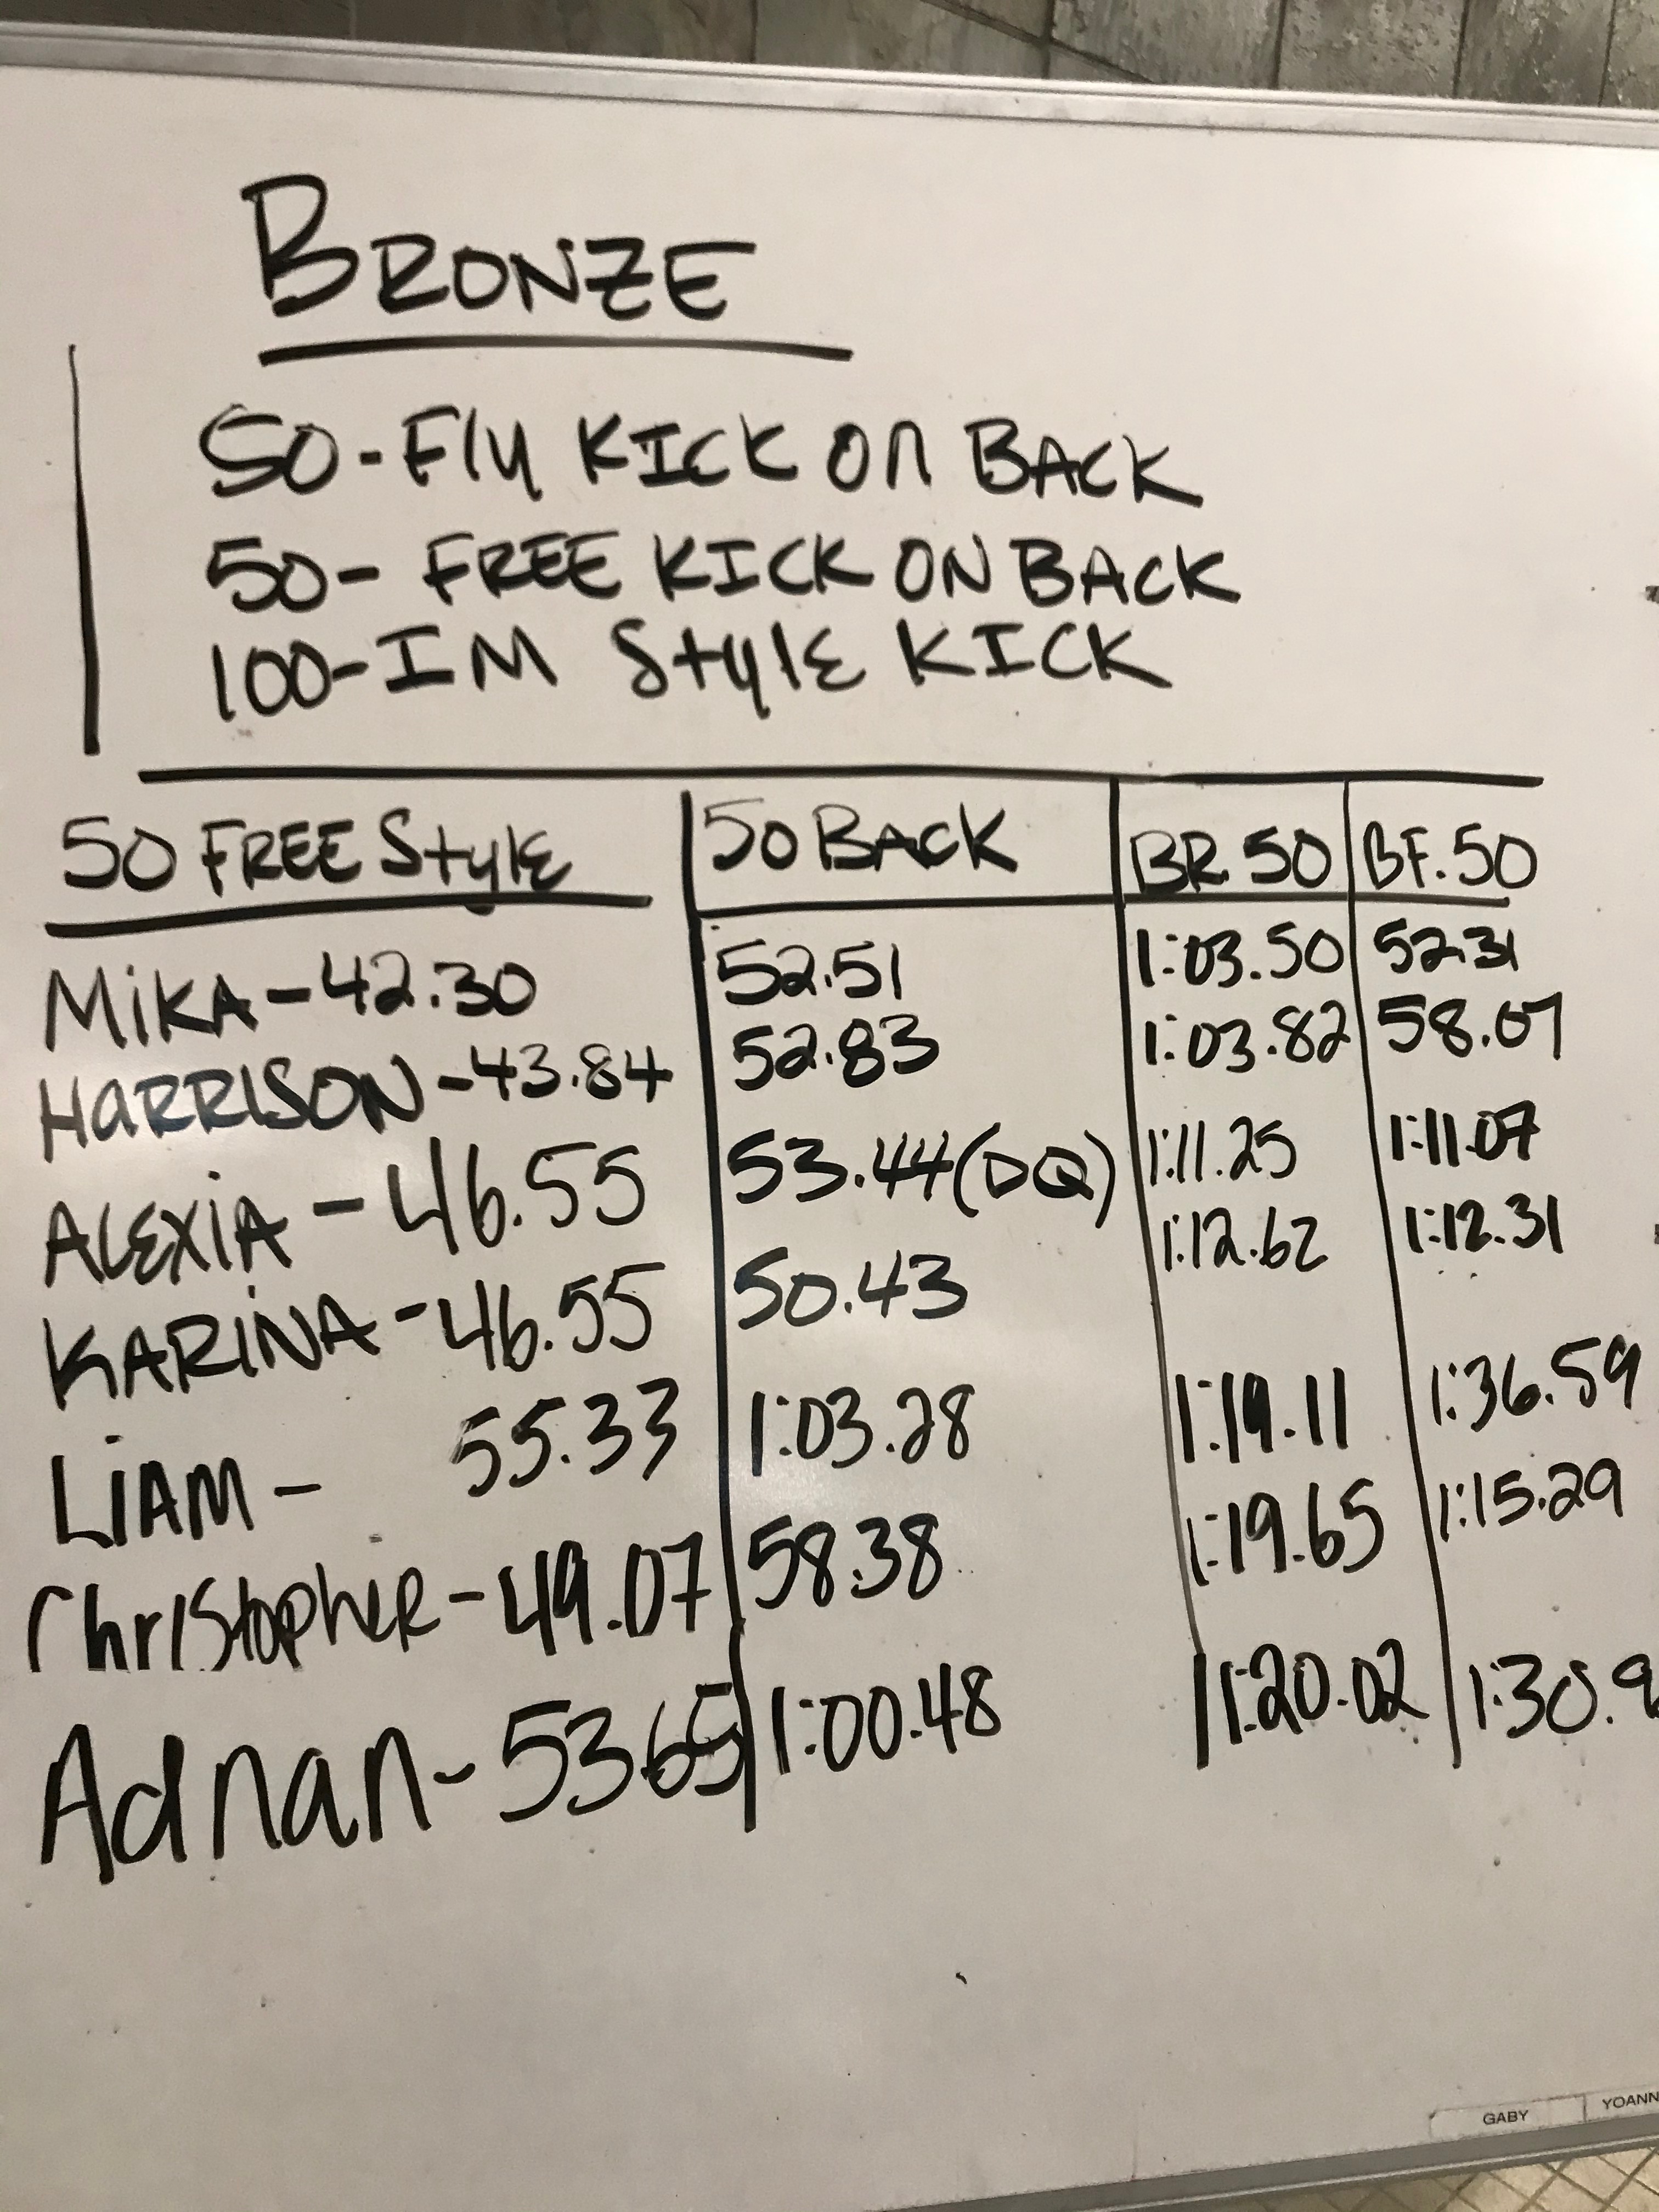 BRONZE
50-Fly KICK On BACK
50- FREE KICK ON BACK
100-IM StylE KICK
50 FREE StylE 50 BACK BR. 50 BF. 50
MiKA - 42.30 52.51 1:03.50 52.31
HaRRISON - 43.84 52.83 1:03.82 58.07
ALEXiA - 46.55 53.44 (DQ) 1:11.25 1:11.07
KARiNA - 46.55 50.43 1:12.62 1:12.31
LiAM - 55.33 1:03.28 1:19.11 1:36.59
ChrIStophER - 49.07 58.38 1:19.65 1:15.29
Adnan - 5365 1:00.48 1:20.02 1:30.9
GABY YOANN